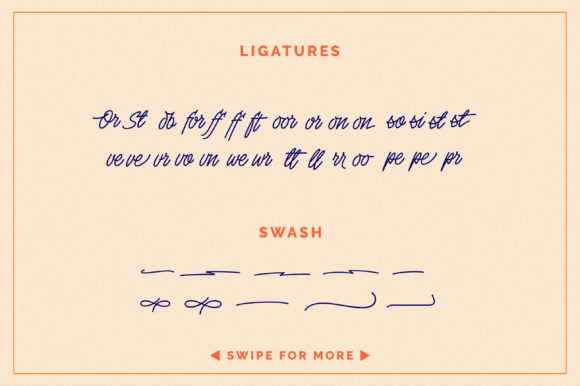 LIGATURES
Or St for ff ff ft oor or on on so si st st
ve ve vr vo vn we wr tt ll rr oo pe pe pr
SWASH
SWIPE FOR MORE